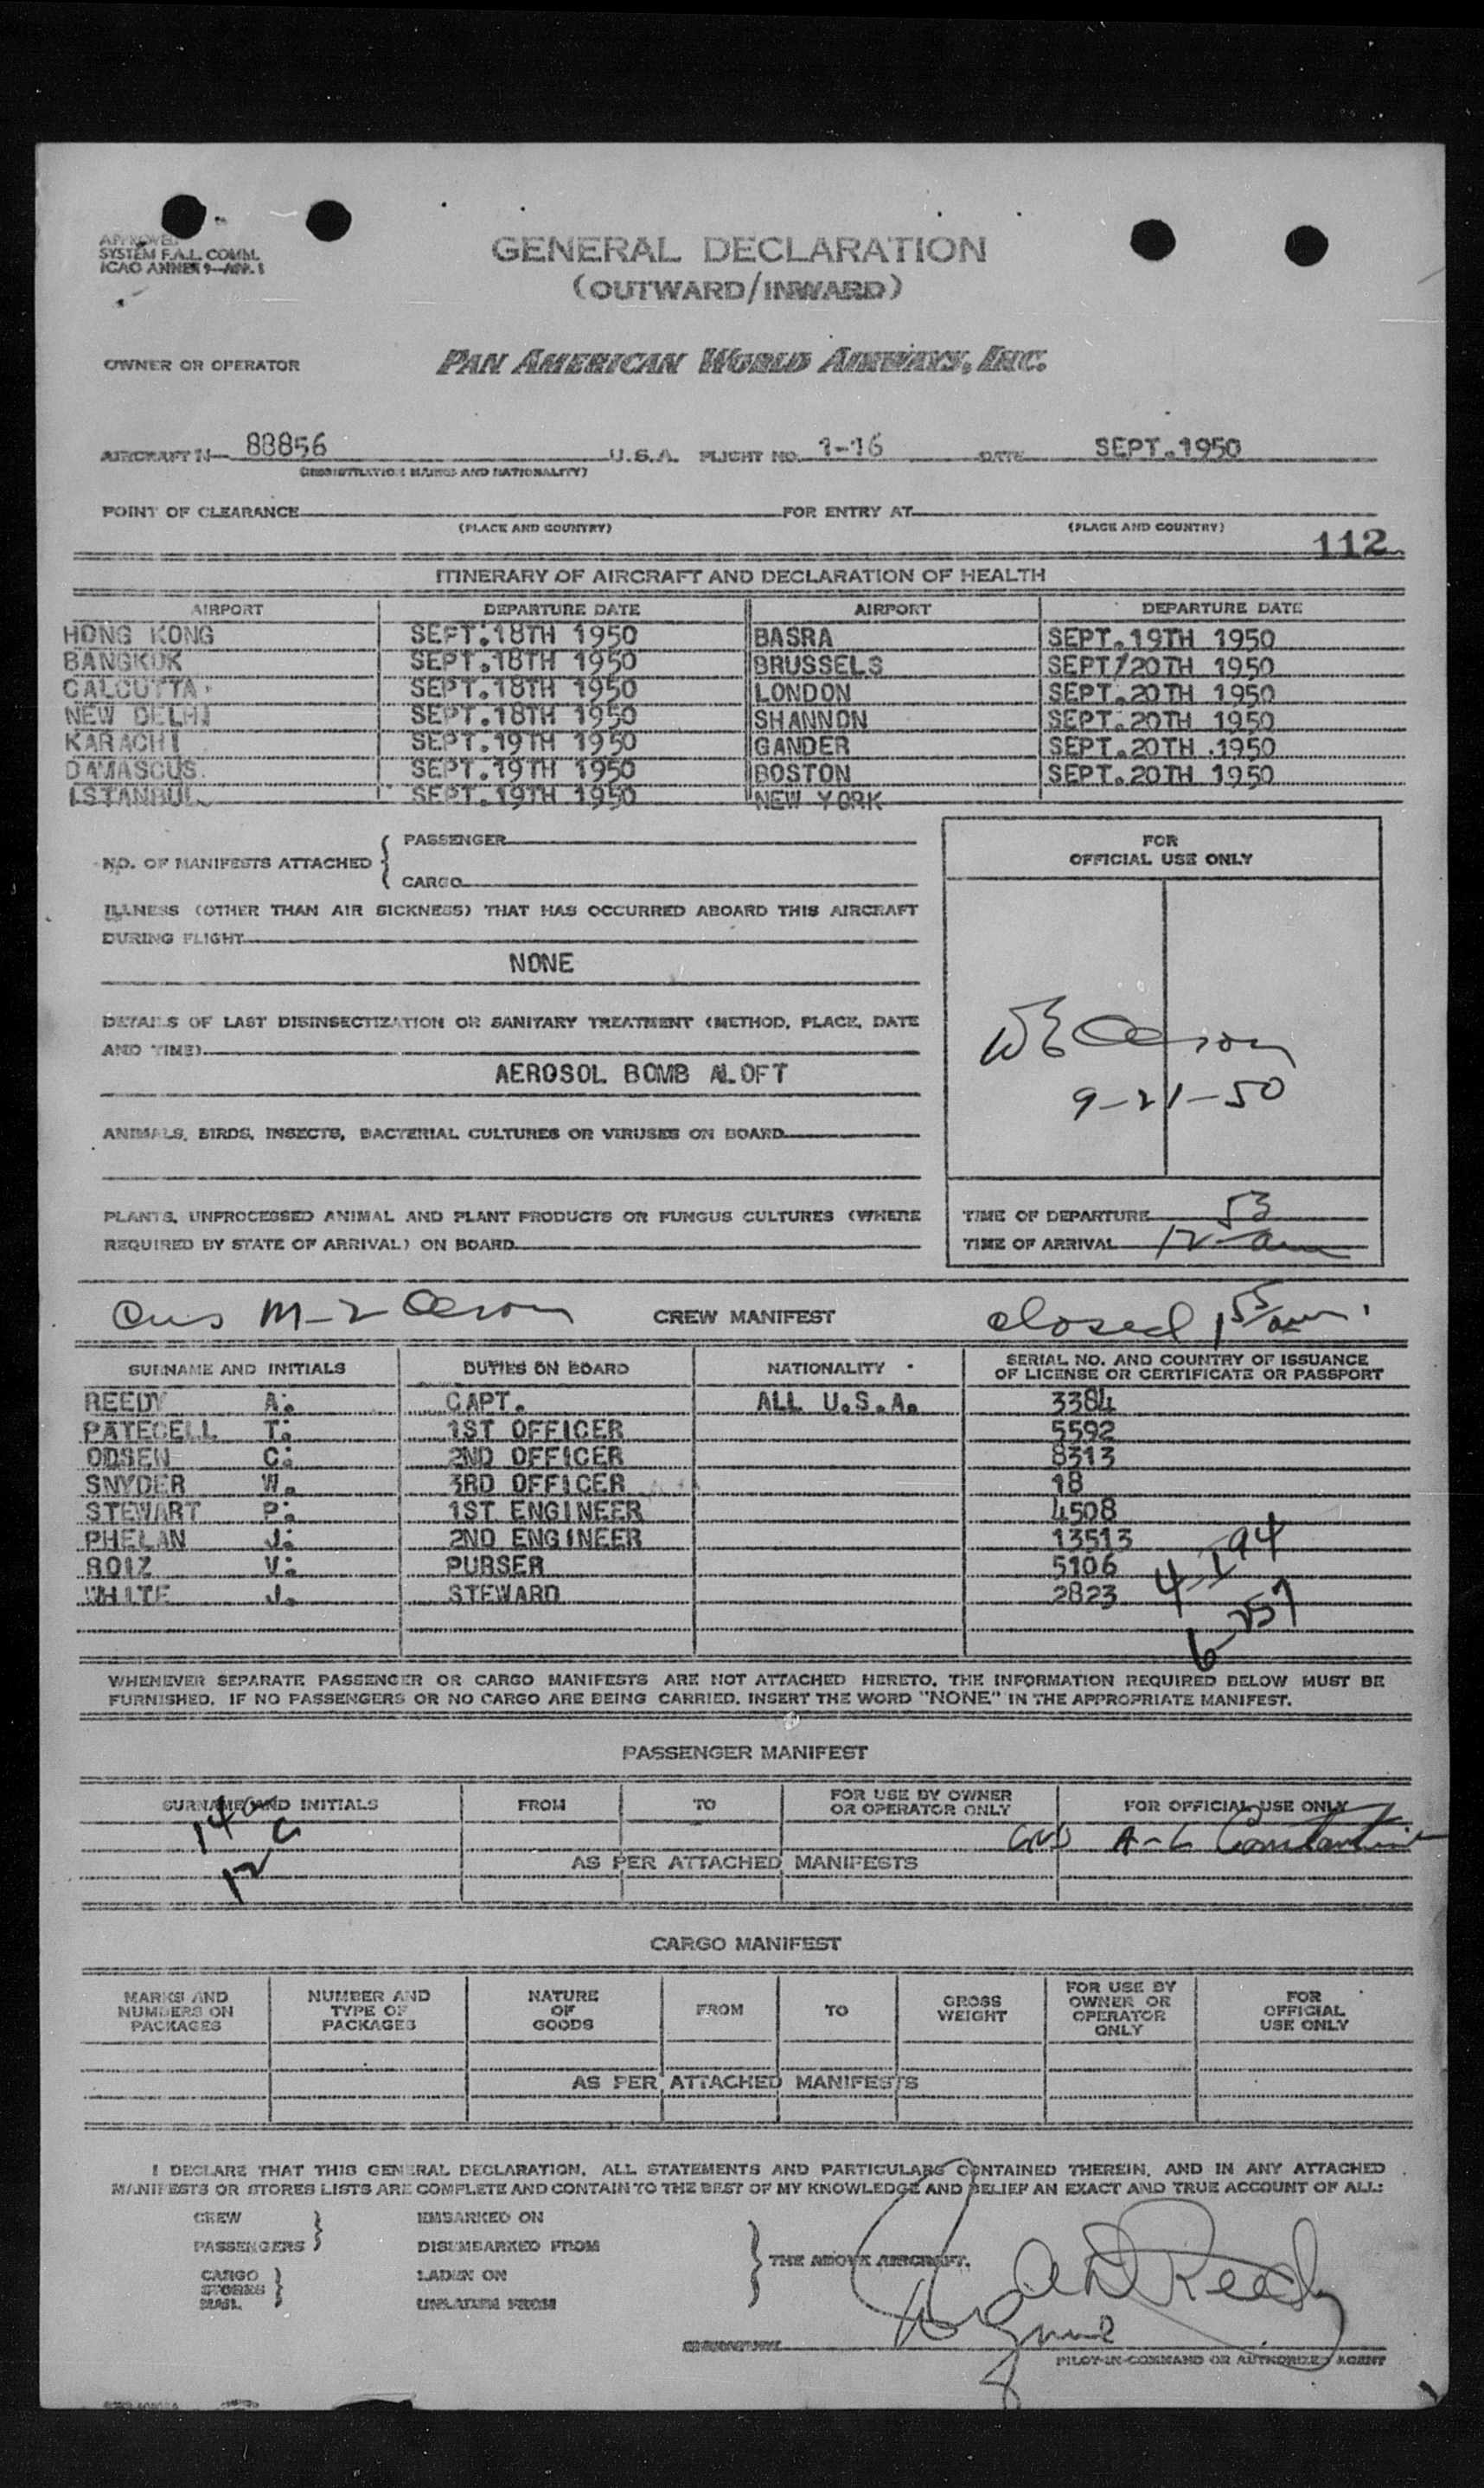 APPROVED
SYSTEM F.A.L. COMM.
ICAO ANNEX 9—APP. 1
GENERAL DECLARATION
(OUTWARD/INWARD)
OWNER OR OPERATOR PAN AMERICAN WORLD AIRWAYS, INC.
AIRCRAFT N— 88856 U.S.A. FLIGHT NO. 1-16 DATE SEPT.1950
(REGISTRATION MARKS AND NATIONALITY)
POINT OF CLEARANCE FOR ENTRY AT
(PLACE AND COUNTRY) (PLACE AND COUNTRY)
112
ITINERARY OF AIRCRAFT AND DECLARATION OF HEALTH
AIRPORT DEPARTURE DATE AIRPORT DEPARTURE DATE
HONG KONG SEPT.18TH 1950 BASRA SEPT.19TH 1950
BANGKOK SEPT.18TH 1950 BRUSSELS SEPT/20TH 1950
CALCUTTA SEPT.18TH 1950 LONDON SEPT.20TH 1950
NEW DELHI SEPT.18TH 1950 SHANNON SEPT.20TH 1950
KARACHI SEPT.19TH 1950 GANDER SEPT.20TH 1950
DAMASCUS SEPT.19TH 1950 BOSTON SEPT.20TH 1950
ISTANBUL SEPT.19TH 1950 NEW YORK
NO. OF MANIFESTS ATTACHED { PASSENGER
CARGO
FOR
OFFICIAL USE ONLY
ILLNESS (OTHER THAN AIR SICKNESS) THAT HAS OCCURRED ABOARD THIS AIRCRAFT
DURING FLIGHT
NONE
DETAILS OF LAST DISINSECTIZATION OR SANITARY TREATMENT (METHOD, PLACE, DATE
AND TIME)
AEROSOL BOMB ALOFT
9-21-50
ANIMALS, BIRDS, INSECTS, BACTERIAL CULTURES OR VIRUSES ON BOARD
PLANTS, UNPROCESSED ANIMAL AND PLANT PRODUCTS OR FUNGUS CULTURES (WHERE
REQUIRED BY STATE OF ARRIVAL) ON BOARD
TIME OF DEPARTURE
TIME OF ARRIVAL 12 53 am
CREW MANIFEST closed 1 55 am
SURNAME AND INITIALS DUTIES ON BOARD NATIONALITY SERIAL NO. AND COUNTRY OF ISSUANCE
OF LICENSE OR CERTIFICATE OR PASSPORT
REEDY A. CAPT. ALL U.S.A. 3384
PATECELL T. 1ST OFFICER 5592
ODSEN C. 2ND OFFICER 8313
SNYDER W. 3RD OFFICER 18
STEWART P. 1ST ENGINEER 4508
PHELAN J. 2ND ENGINEER 13513
ROIZ V. PURSER 5106
WHITE J. STEWARD 2823
4-I 94
6-257
WHENEVER SEPARATE PASSENGER OR CARGO MANIFESTS ARE NOT ATTACHED HERETO, THE INFORMATION REQUIRED BELOW MUST BE
FURNISHED. IF NO PASSENGERS OR NO CARGO ARE BEING CARRIED, INSERT THE WORD "NONE" IN THE APPROPRIATE MANIFEST.
PASSENGER MANIFEST
SURNAME AND INITIALS FROM TO FOR USE BY OWNER
OR OPERATOR ONLY FOR OFFICIAL USE ONLY
AS PER ATTACHED MANIFESTS
CARGO MANIFEST
MARKS AND
NUMBERS ON
PACKAGES
NUMBER AND
TYPE OF
PACKAGES
NATURE
OF
GOODS
FROM
TO
GROSS
WEIGHT
FOR USE BY
OWNER OR
OPERATOR
ONLY
FOR
OFFICIAL
USE ONLY
AS PER ATTACHED MANIFESTS
I DECLARE THAT THIS GENERAL DECLARATION, ALL STATEMENTS AND PARTICULARS CONTAINED THEREIN, AND IN ANY ATTACHED
MANIFESTS OR STORES LISTS ARE COMPLETE AND CONTAIN TO THE BEST OF MY KNOWLEDGE AND BELIEF AN EXACT AND TRUE ACCOUNT OF ALL:
CREW EMBARKED ON
PASSENGERS DISEMBARKED FROM
THE ABOVE AIRCRAFT.
CARGO LADEN ON
STORES
MAIL UNLADEN FROM
A D Reedy
SIGNATURE
PILOT-IN-COMMAND OR AUTHORIZED AGENT